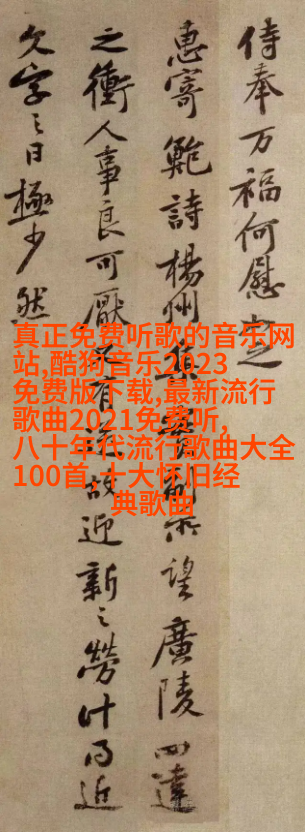 侍奉万福何慰如之
惠寄鮑詩楊州集實副所望廣陵四達
之衝人事良可厭又有送故迎新之勞計日近
欠字之日極少然
真正免费听歌的音乐网
站,酷狗音乐2023
免费版下载,最新流行
歌曲2021免费听,
八十年代流行歌曲大全
100首,十大怀旧经
典歌曲